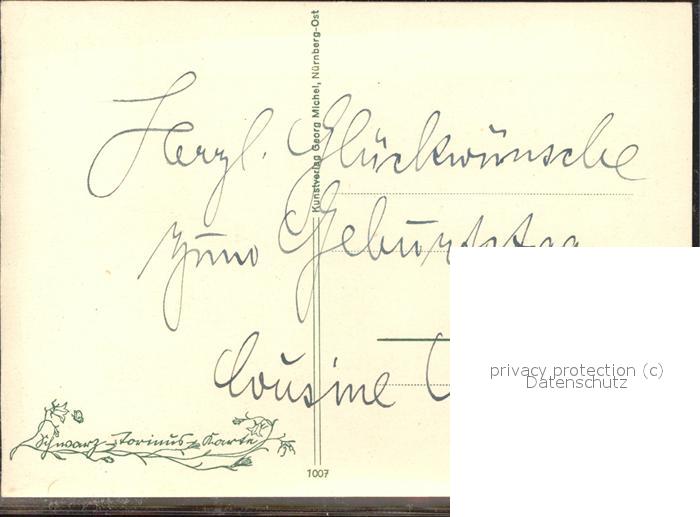 Herzl. Glückwünsche
zum Geburtstag
Cousine
Kunstverlag Georg Michel, Nürnberg-Ost
Schwarz-Torinus-Karte
1007
privacy protection (c)
Datenschutz